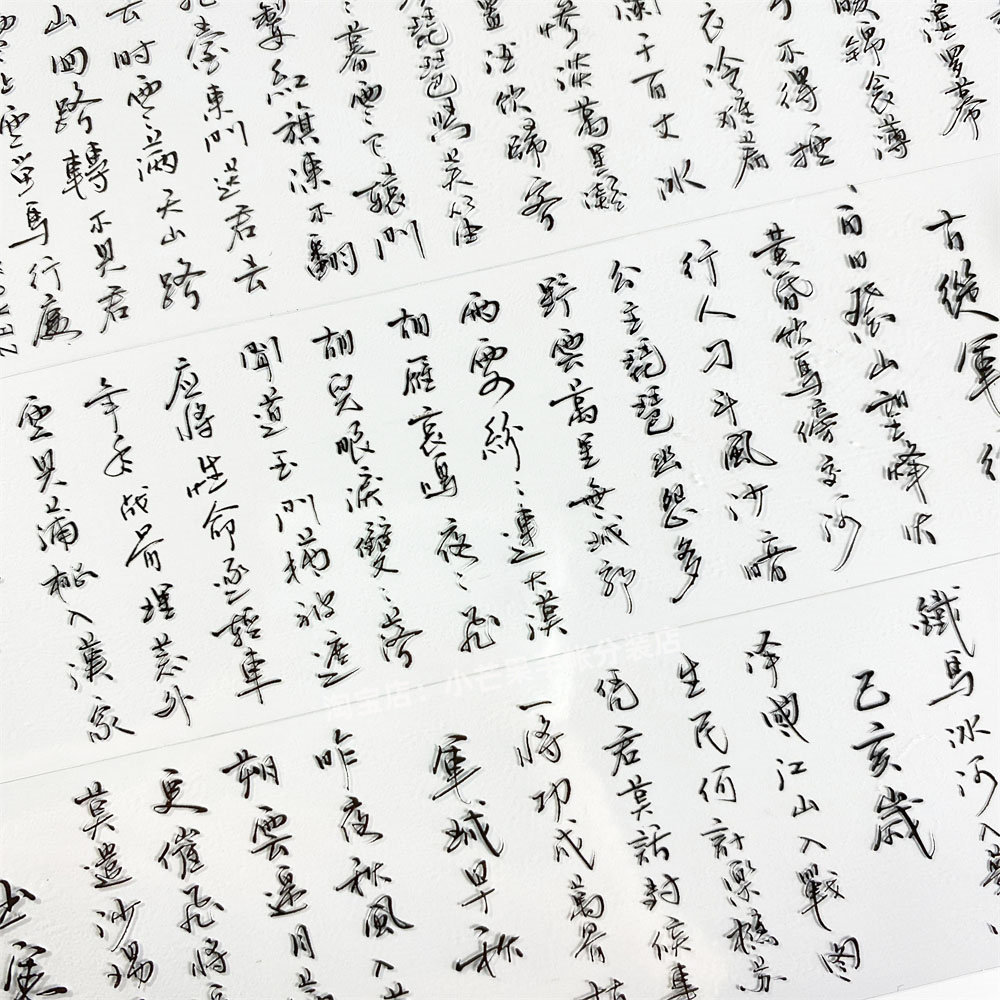 濕羅幕
暖錦衾薄
不得控
衣冷难着
闌干百丈冰
惨淡萬里凝
置酒飲歸客
琵琶與羌笛
暮雪下轅門
掣紅旗凍不翻
臺東門送君去
去时雪满天山路
山回路轉不見君
馬行處
古從軍行
白日登山望烽火
黃昏飲馬傍交河
行人刁斗風沙暗
公主琵琶幽怨多
野雲萬里無城郭
雨雪紛々連大漠
胡雁哀鳴夜々飛
胡兒眼淚雙々落
聞道玉門猶被遮
应將性命逐輕車
年年战骨埋荒外
空見蒲桃入漢家
鐵馬冰河入夢
己亥歲
泽國江山入戰图
生民何計樂樵苏
凭君莫話封侯事
一將功成萬骨枯
軍城早秋
昨夜秋風入
朔雲邊月
更催飛將
莫遣沙場
出塞